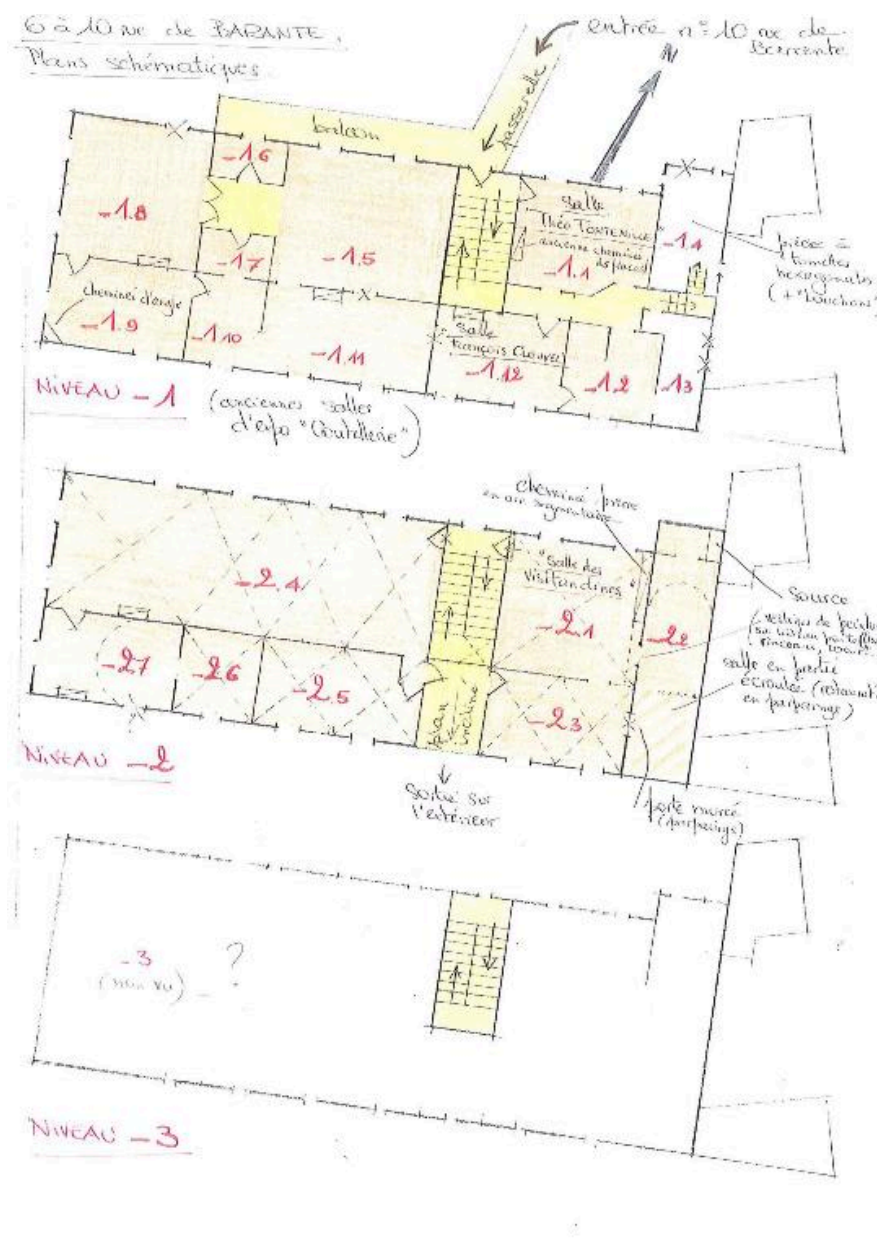 6 à 10 rue de BARANTE.
Plans schématiques.
entrée n° 10 rue de
Barante
N
passerelle
balcon
-1.6
-1.8
-1.7
-1.5
Salle
Théo FONTENILLE
ancienne cheminée
déplacée
-1.1
-1.4
pièce à
tomettes
hexagonales
(+ "bouchons")
cheminée d'angle
-1.9
-1.10
-1.11
Salle
François
-1.12
-1.2
-1.3
NIVEAU -1
(anciennes salles
d'expo "Coutellerie")
cheminée pierre
en arc segmentaire
-2.4
Salle des
Visitandines
-2.1
-2.2
source
-2.7
-2.6
-2.5
plan
incliné
-2.3
salle en partie
écroulée
en parpaings)
NIVEAU -2
Sortie sur
l'extérieur
porte murée
(parpaings)
-3
(non vu) _ ?
NIVEAU -3